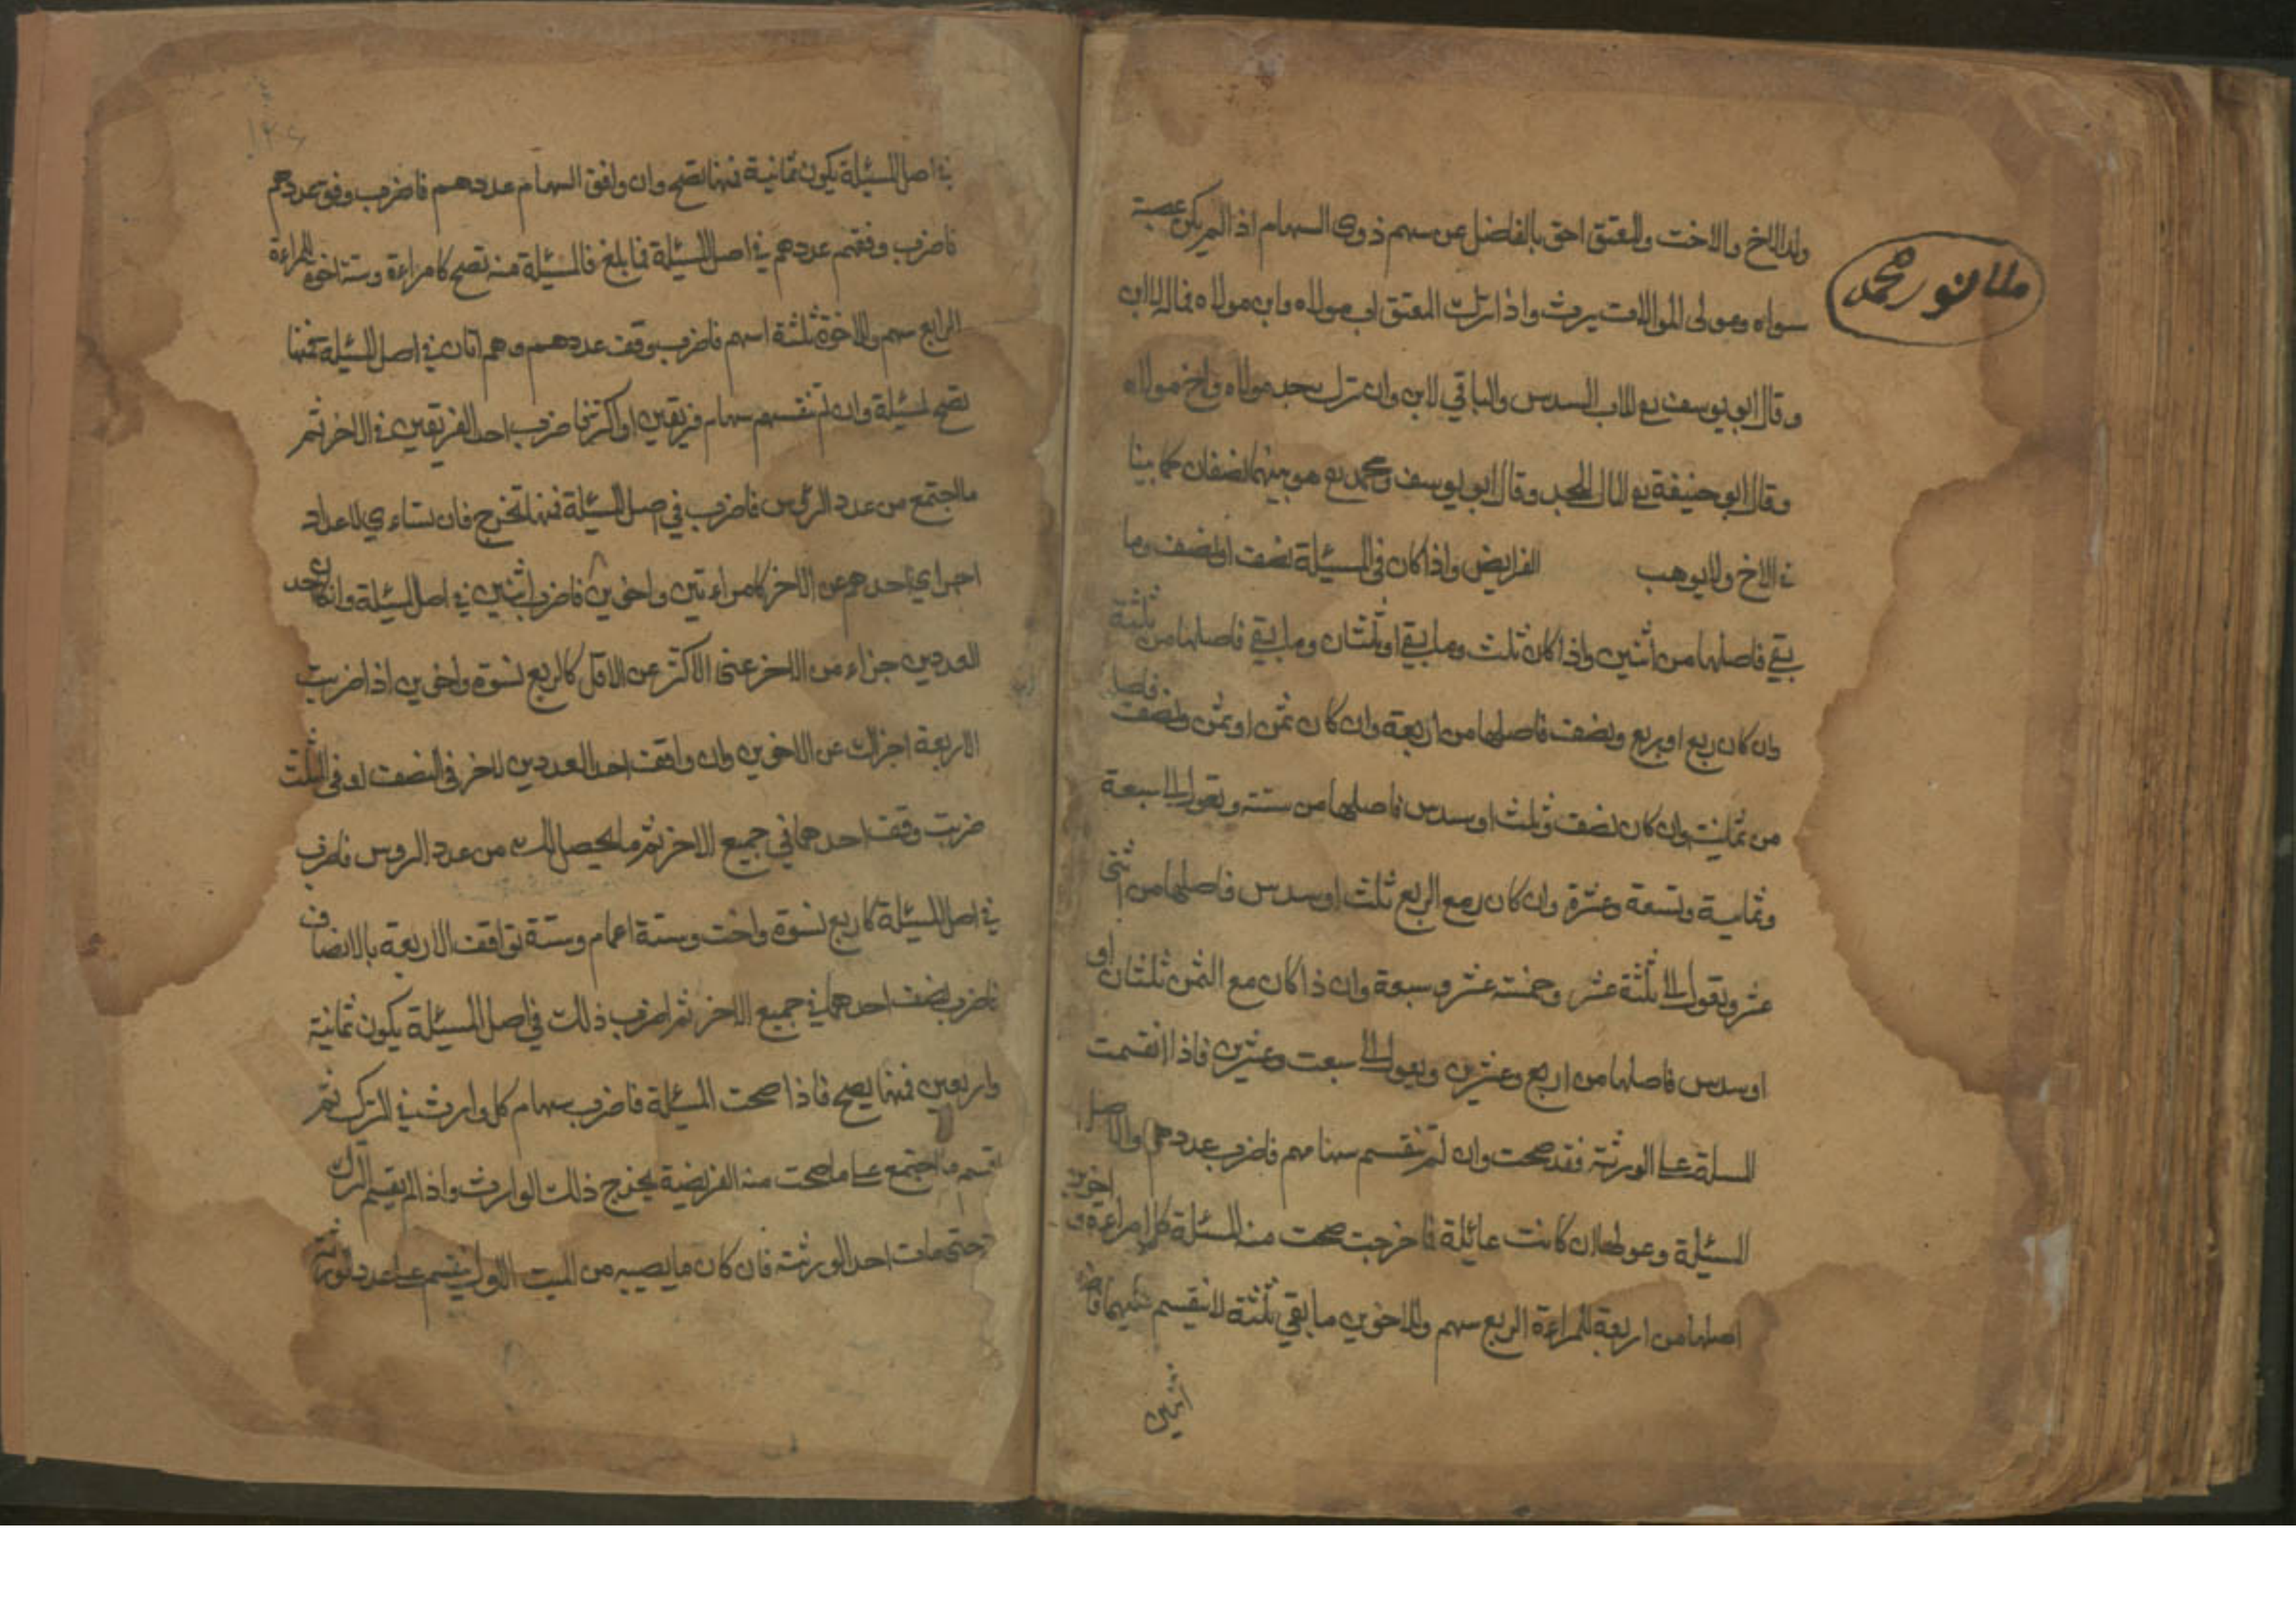 ملا نور محمد
ولد الاخ والاخت والمعتق احق بالفاضل عن سهم ذوى السهام اذا لم يكن عصبة
سواه ومولى الموالات يرث واذا ترك المعتق اب مولاه وابن مولاه فماله للابن
وقال ابو يوسف رح للاب السدس والباقي لابن وان ترك جد مولاه واخ مولاه
وقال ابو حنيفة رح المال للجد وقال ابو يوسف ومحمد رح هو بينهما نصفان كما بينا
في الاخ ولا يوهب الفرايض واذا كان في المسئلة نصف او نصف وما
بقي فاصلها من اثنين واذا كان ثلث وما بقي او ثلثان وما بقي فاصلها من ثلثة
وان كان ربع او ربع ونصف فاصلها من اربعة وان كان ثمن او ثمن ونصف فاصل
من ثمانية وان كان نصف وثلث او سدس فاصلها من ستة وتعول الى سبعة
وثمانية وتسعة وعشرة وان كان مع الربع ثلث او سدس فاصلها من اثنى
عشر وتعول الى ثلثة عشر وخمسة عشر وسبعة وان ذا كان مع الثمن ثلثان او
او سدس فاصلها من اربع وعشرين وتعول الى سبعت وعشرين فاذا انقسمت
المسلة على الورثة فقد صحت وان لم تنقسم سهامهم فاضرب عددهم والاصل
المسئيلة وعولها ان كانت عائلة فاخرجت صحت منه المسئلة كل امراءة و اخوين
اصلها من اربعة للمراءة الربع سهم وللاخوين ما بقي ثلثة لا ينقسم عليهما فاضر
اثنين
في اصل المسئيلة يكون ثمانية فمنها تصح وان وافق السهام عددهم فاضرب وفق عددهم
فاضرب وفقهم عددهم في اصل المسئيلة فما بلغ فالمسئيلة منه تصح كامراءة وستة اخوة للمراءة
الرابع سهم وللاخوة ثلثة اسهم فاضرب وقف عددهم وهم اثنان في اصل المسئيلة فمنها
تصح لمسئيلة وان لم تنقسم سهام فريقين او اكثر فاضرب احد الفريقين في الاخر ثم
ما اجتمع من عدد الرئس فاضرب في اصل المسئيلة فمنها تخرج فان تساءوي لاعداد
اجراي احدهم عن الاخر كامراءتين واخوين فاضرب اثنين في اصل المسئيلة وان كان احد
العددين جزاء من الاخر عنى الاكثر عن الاقل كالربع نسوة واخوين اذا ضربت
الاربعة اجزاك عن الاخوين وان واقف احد العددين لاخر في النصف او في الثلث
ضربت وقف احدهما في جميع الاخر ثم ما يحصل لك من عدد الروس فاضرب
في اصل المسئيلة كاربع نسوة واخت وستة اعمام وستة توافقف الاربعة بالانصاف
فاضرب نصف احدهما في جميع الاخر ثم اضرب ذلك في اصل المسيئلة يكون ثمانية
واربعين فمنها يصح فاذا صحت المسئلة فاضرب سهام كل وارث في الترك ثم
اقسم ما اجتمع على ما صحت منه الفريضة يخرج ذلك الوارث واذا لم يقسم الترك
حتى مات احد الورثة فان كان ما يصيبه من الميت الاول ينقسم على عدد الورثة